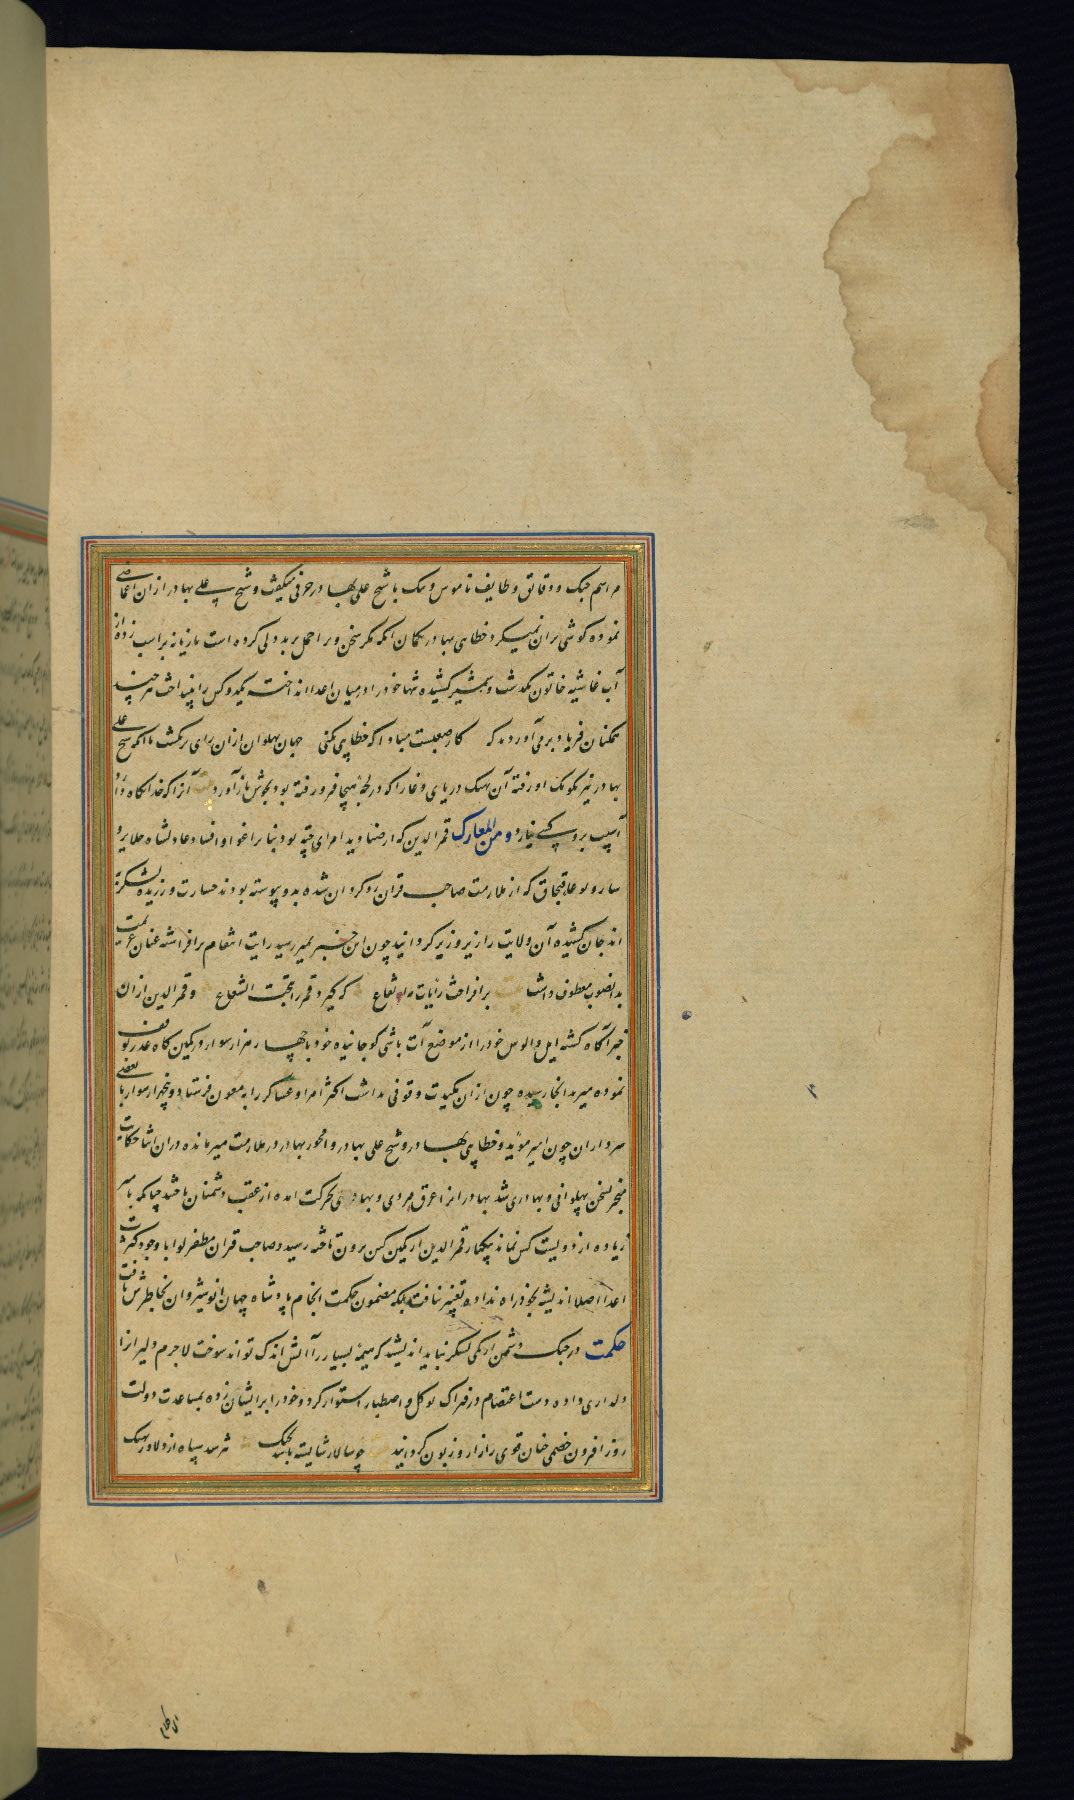 مراسم جنک و دقائق وظایف ناموس و ننک با شیخ علی بهادر حرفی میگفت و شیخ علی بهادر ازان اغماضی
نموده کوشی بران نمیکرد خطای بهادر بکمان انکه مکر سخن ورا حمل بر بد دلی کرده است تازیانه بر اسب زده از
آب غاشیه خاتون بکدشت و شمشیر کشیده تنها خود را در میان اعدا انداخت یکدو کس را بینداخت هر چند
تمکنان فریاد بر می آوردند که کار صعبست مبادا که خطایی کنی جهان پهلوان ازان رای برنکشت تا انکه شیخ علی
بهادر نیز بکومک او رفته آن نهنک دریای وغا را که در لجهٔ هیجا فرو رفته بود بجوش باز آورد آنرا که خدا نکاه دارد
آسیب برو کسی نیارد و من المعارک قمرالدین که از صنادید امرای جته بود بنابر اغوا و افساد عادلشاه جلایر و
ساروبوغا قبچاق که از ملازمت صاحب قران رو کردان شده بدو پیوسته بودند جسارت ورزیده لشکر به
اندجان کشیده آن ولایت را زیر و زبر کردانید چون این خبر بمیر رسید رایت انتقام برافراشته عنان عزیمت
بدانصوب معطوف داشت برافراخت رایات مه ارتفاع که کیرد قمر را تحت الشعاع و قمرالدین ازان
خبر آکاه کشته ایل و الوس خود را از موضع آت باشی کوچانیده خود با چهار هزار سوار در کمین کاه غدر توقف
نموده میر بدانجا رسیده چون ازان مکیدت وقوفی نداشت اکثر امرا و عساکر را به معون فرستاد و پنجهزار سوار با بعضی
سرداران چون امیر مؤید و خطایی بهادر و شیخ علی بهادر و اقمور بهادر در ملازمت میر مانده دران اثنا حکایت
منجر بسخن پهلوانی و بهادری شد بهادران را عرق مردی و بهادری بحرکت امده از عقب دشمنان تاختند چنانکه با میر
زیاده از دویست کس نماند یکبار قمرالدین از کمین کین برون تاخته رسید و صاحب قران مظفر لوا با وجود کثرت
اعدا اصلا اندیشه بخود راه نداده تغییر نیافت بلکه مضمون حکمت انجام پادشاه جهان انوشیروان بخاطرش تافت
حکمت در جنک دشمن از کمی لشکر نباید اندیشید که هیمهٔ بسیار را آتش اندک تواند سوخت لاجرم دلیران را
دلداری داده دست اعتصام در فتراک توکل و اصطبار استوار کرد و خود را بر ایشان زده بمساعدت دولت
روز افزون خصمی چنان قوی را زار و زبون کردانید چو سالار شایسته باشد بجنک نترسد سپاه از دلاور نهنک